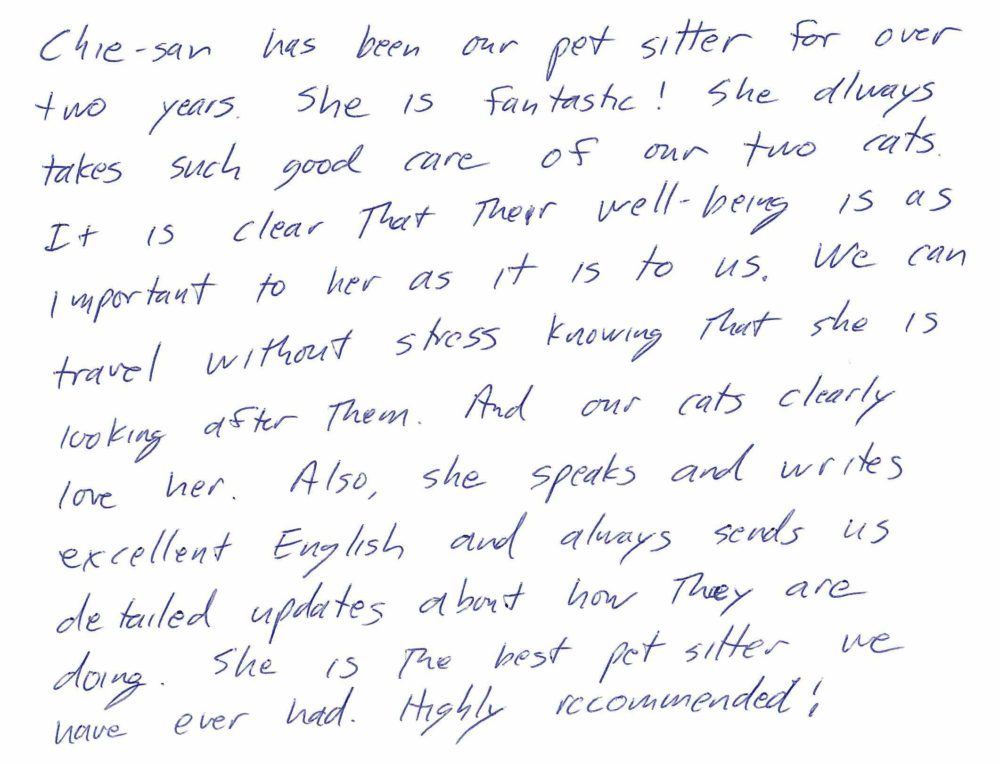 Chie-san has been our pet sitter for over
two years. She is fantastic! She always
takes such good care of our two cats.
It is clear that their well-being is as
important to her as it is to us. We can
travel without stress knowing that she is
looking after them. And our cats clearly
love her. Also, she speaks and writes
excellent English and always sends us
detailed updates about how they are
doing. She is the best pet sitter we
have ever had. Highly recommended!